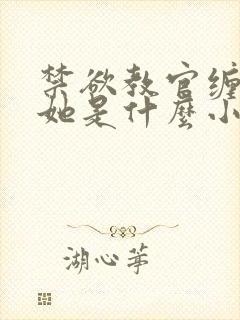 禁欲教官缠
她是什麼小
湖心茅